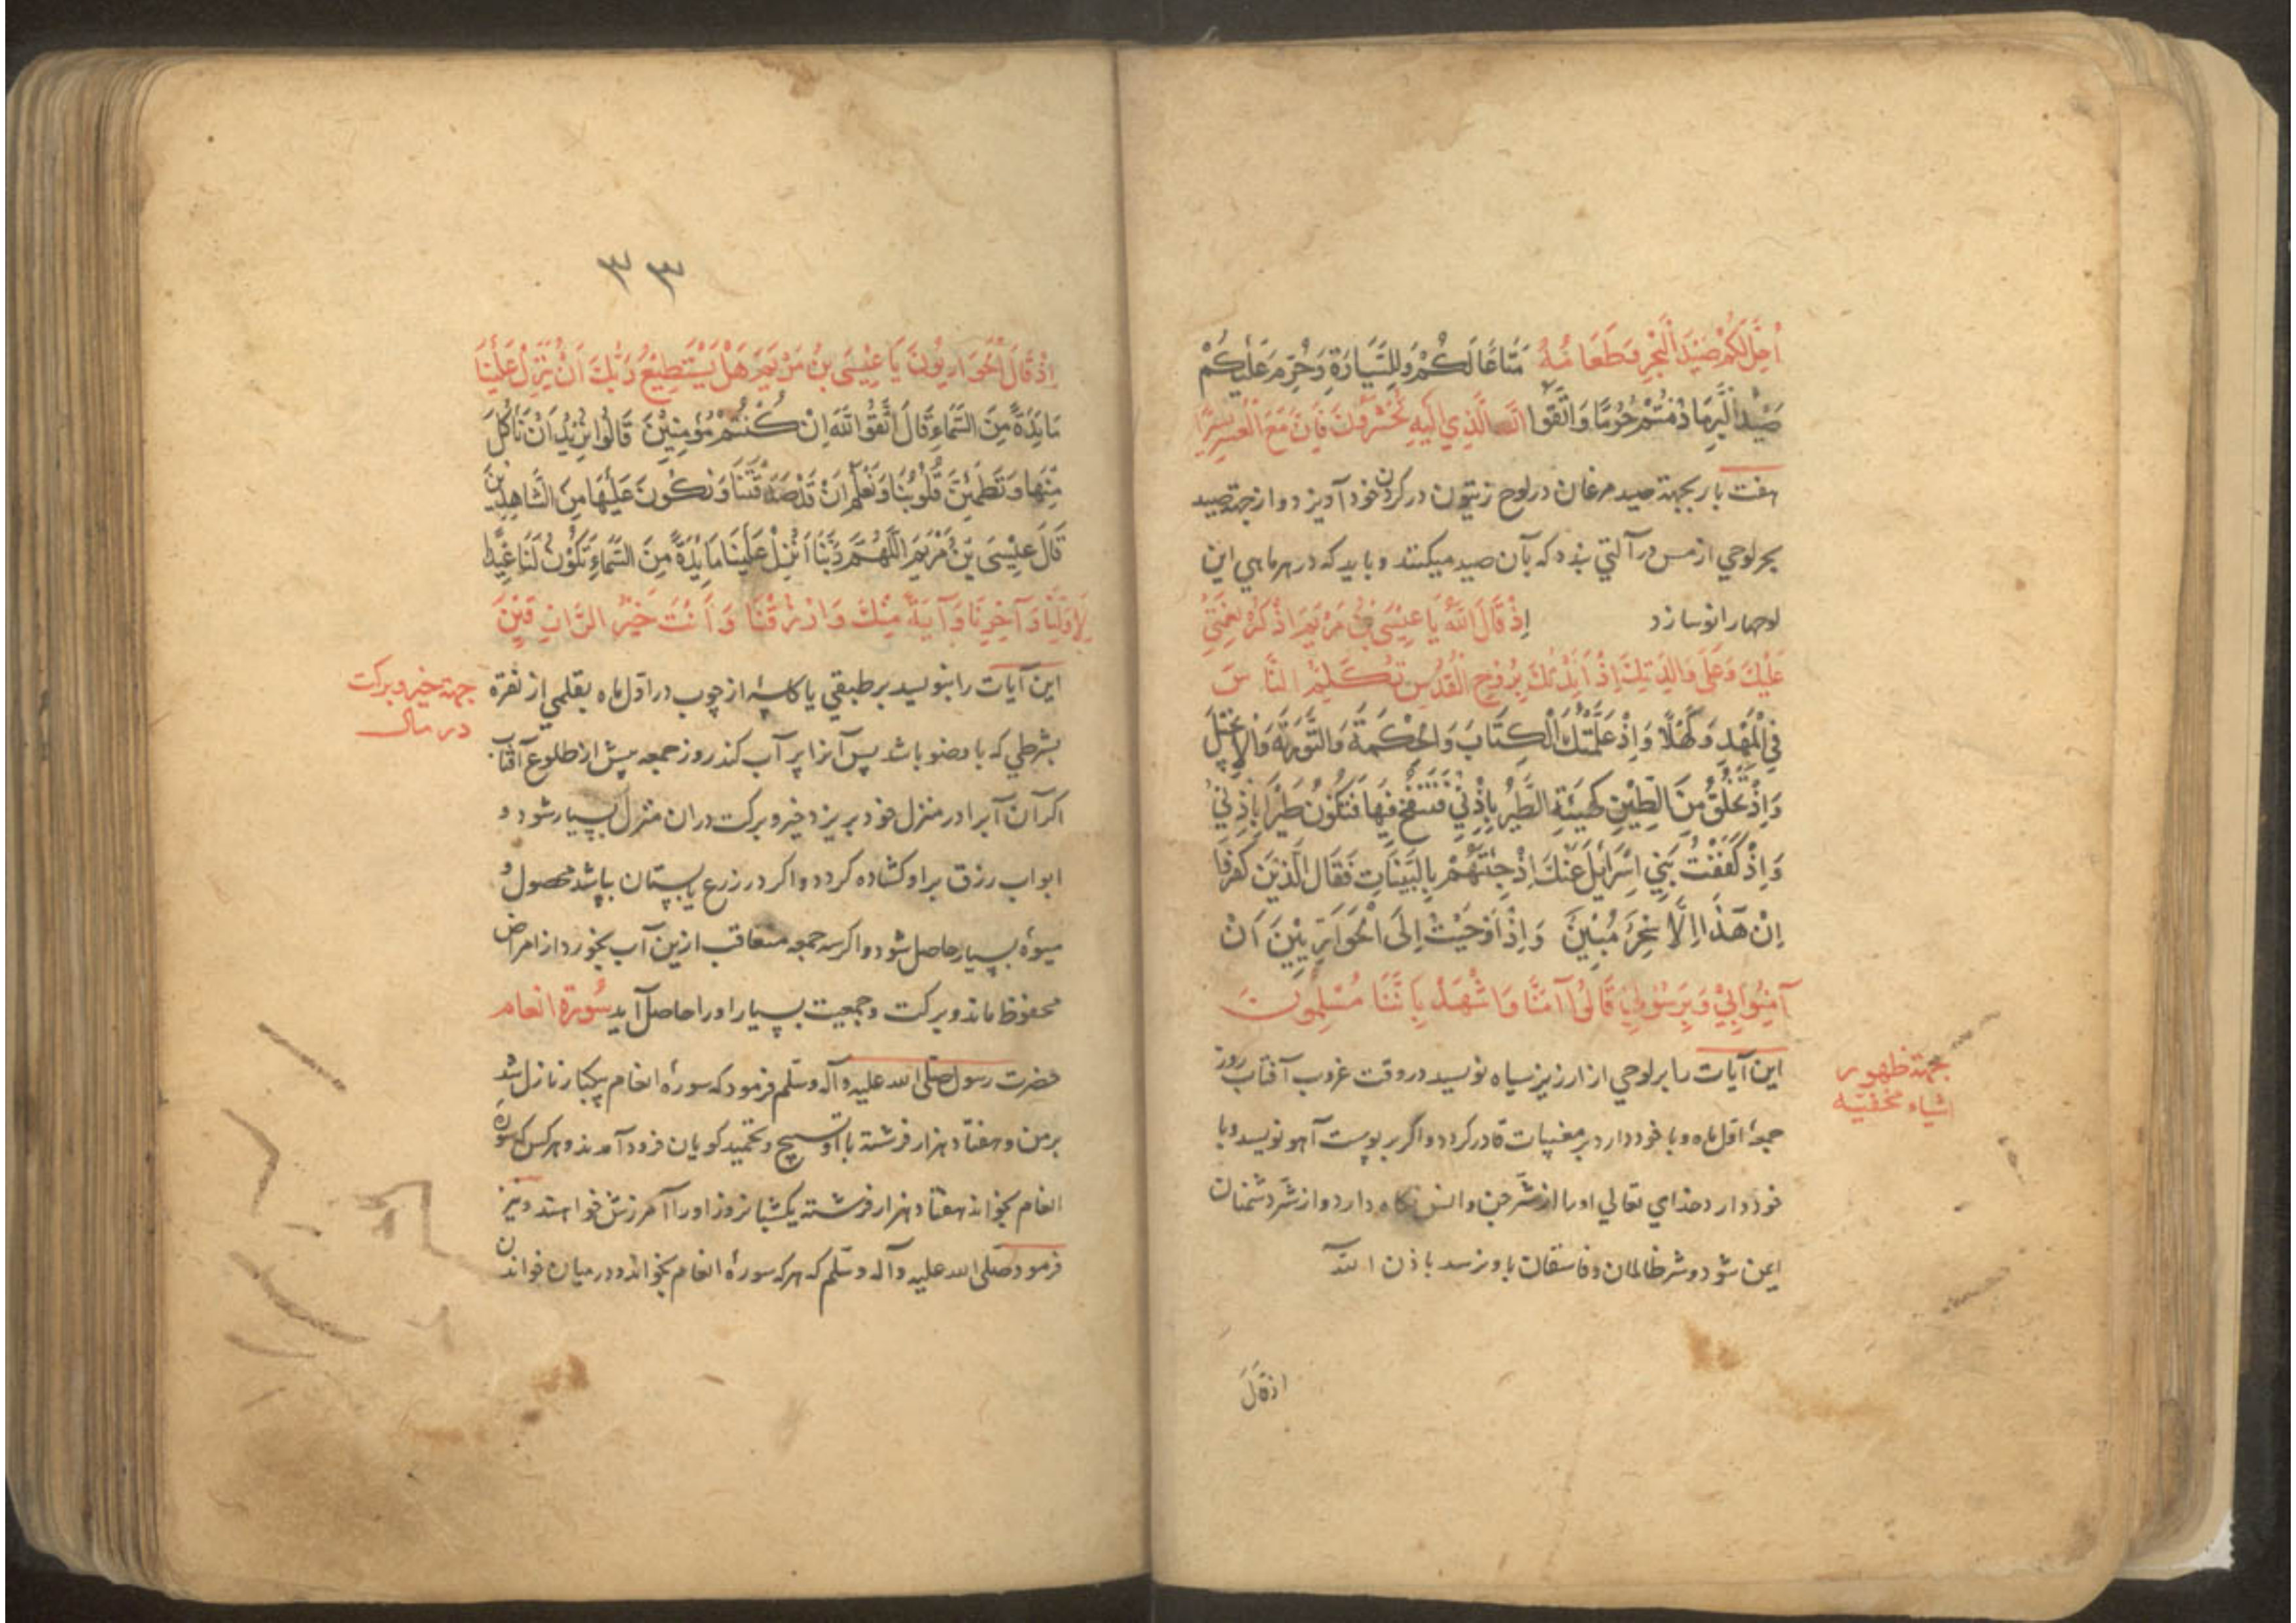 اُحِلَّ لَكُمْ صَيْدُ الْبَحْرِ وَطَعَامُهُ مَتَاعًا لَكُمْ وَلِلسَّيَّارَةِ وَحُرِّمَ عَلَيْكُمْ
صَيْدُ الْبَرِّ مَا دُمْتُمْ حُرُمًا وَاتَّقُوا اللَّهَ الَّذِي اِلَيْهِ تُحْشَرُونَ فَاِنَّ مَعَ الْعُسْرِ يُسْرًا
هفت بار بجهة صيد مرغان در لوح زيتون در كردن خود آويزد و از جهة صيد
بحر لوحي از مس در آلتي بندد كه بآن صيد ميكنند و بايد كه در هر ماهي اين
لوحها را نو سازد اِذْ قَالَ اللَّهُ يَا عِيْسَى بْنُ مَرْيَمَ اذْكُرْ نِعْمَتِيْ
عَلَيْكَ وَعَلَى وَالِدَتِكَ اِذْ اَيَّدْتُكَ بِرُوْحِ الْقُدُسِ تُكَلِّمُ النَّاسَ
فِي الْمَهْدِ وَكَهْلًا وَاِذْ عَلَّمْتُكَ الْكِتَابَ وَالْحِكْمَةَ وَالتَّوْرٰيةَ وَالْاِنْجِيْلَ
وَاِذْ تَخْلُقُ مِنَ الطِّيْنِ كَهَيْئَةِ الطَّيْرِ بِاِذْنِيْ فَتَنْفُخُ فِيْهَا فَتَكُوْنُ طَيْرًا بِاِذْنِيْ
وَاِذْ كَفَفْتُ بَنِي اِسْرَائِيْلَ عَنْكَ اِذْ جِئْتَهُمْ بِالْبَيِّنَاتِ فَقَالَ الَّذِيْنَ كَفَرُوا
اِنْ هَذَا اِلَّا سِحْرٌ مُبِيْنٌ وَاِذْ اَوْحَيْتُ اِلَى الْحَوَارِيِّيْنَ اَنْ
آمِنُوا بِيْ وَبِرَسُوْلِيْ قَالُوْا آمَنَّا وَاشْهَدْ بِاَنَّنَا مُسْلِمُوْنَ
اين آيات را بر لوحي از ارزيز سياه نويسد در وقت غروب آفتاب روز
بجهة ظهور
اشياء مخفيه
جمعهٔ اول ماه و با خود دارد بر مغيبات قادر كردد و اگر بر پوست آهو نويسد و با
خود دارد خداي تعالي او را از شر جن و انس نگاه دارد و از شر دشمنان
ايمن شود و شر ظالمان و فاسقان باو نرسد باذن الله
اذ قال
٣٣
اِذْ قَالَ الْحَوَارِيُّوْنَ يَا عِيْسَى بْنُ مَرْيَمَ هَلْ يَسْتَطِيْعُ رَبُّكَ اَنْ يُنَزِّلَ عَلَيْنَا
مَائِدَةً مِنَ السَّمَاءِ قَالَ اتَّقُوْا اللَّهَ اِنْ كُنْتُمْ مُؤْمِنِيْنَ قَالُوْا نُرِيْدُ اَنْ نَأْكُلَ
مِنْهَا وَتَطْمَئِنَّ قُلُوْبُنَا وَنَعْلَمَ اَنْ قَدْ صَدَقْتَنَا وَنَكُوْنَ عَلَيْهَا مِنَ الشَّاهِدِيْنَ
قَالَ عِيْسَى بْنُ مَرْيَمَ اللَّهُمَّ رَبَّنَا اَنْزِلْ عَلَيْنَا مَائِدَةً مِنَ السَّمَاءِ تَكُوْنُ لَنَا عِيْدًا
لِاَوَّلِنَا وَآخِرِنَا وَآيَةً مِنْكَ وَارْزُقْنَا وَاَنْتَ خَيْرُ الرَّازِقِيْنَ
اين آيات را بنويسد بر طبقي يا كاسهٔ از چوب در اول ماه بقلمي از نقره
جهة خير و بركت
در مال
بشرطي كه با وضو باشد پس آنرا پر آب كند روز جمعه پيش از طلوع آفتاب
اكر آن آبرا در منزل خود بريزد خير و بركت دران منزل بسيار شود و
ابواب رزق بر او كشاده كردد و اكر در زرع يا بستان بپاشد محصول و
ميوهٔ بسيار حاصل شود و اكر سه جمعه متعاقب ازين آب بخورد از امراض
محفوظ ماند و بركت و جمعيت بسيار او را حاصل آيد سُورة انعام
حضرت رسول صلى الله عليه وآله وسلم فرمود كه سورهٔ انعام يكبار نازل شد
بر من و هفتاد هزار فرشته با او تسبيح و تحميد كويان فرود آمدند و هر كس كه سورهٔ
انعام بخواند هفتاد هزار فرشته يكشبانروز او را آمرزش خواهند و نيز
فرمود صلى الله عليه وآله وسلم كه هر كه سورهٔ انعام بخواند و در ميان خواندن